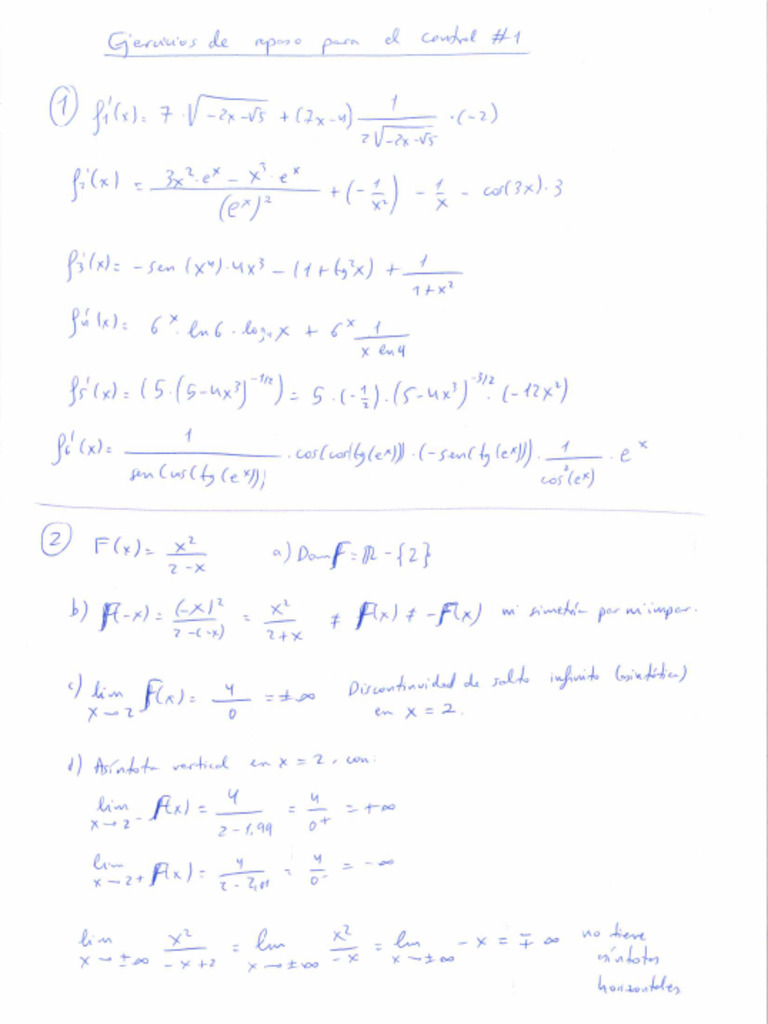 Ejercicios de repaso para el control #1
① f₁'(x) = 7 · √(-2x-√5) + (7x-4) 1/(2√(-2x-√5)) · (-2)
f₂'(x) = (3x²·eˣ - x³·eˣ)/(eˣ)² + (-1/x²) - 1/x - cos(3x)·3
f₃'(x) = -sen(x⁴)·4x³ - (1+tg²x) + 1/(1+x²)
f₄'(x) = 6ˣ · ln6 · log₄x + 6ˣ 1/(x ln4)
f₅'(x) = (5·(5-4x³)^(-1/2)) = 5·(-1/2)·(5-4x³)^(-3/2)·(-12x²)
f₆'(x) = 1/(sen(cos(tg(eˣ)))) · cos(cos(tg(eˣ))) · (-sen(tg(eˣ))) · 1/(cos²(eˣ)) · eˣ
② F(x) = x²/(2-x) a) Dom F = ℝ - {2}
b) F(-x) = (-x)²/(2-(-x)) = x²/(2+x) ≠ F(x) ≠ -F(x) ni simetría par ni impar.
c) lim x→2 F(x) = 4/0 = ±∞ Discontinuidad de salto infinito (asintótica)
en x = 2.
d) Asíntota vertical en x = 2, con:
lim x→2⁻ F(x) = 4/(2-1,99) = 4/0⁺ = +∞
lim x→2⁺ F(x) = 4/(2-2,01) = 4/0⁻ = -∞
lim x→±∞ x²/(-x+2) = lim x→±∞ x²/(-x) = lim x→±∞ -x = ∓∞ no tiene
asíntotas
horizontales